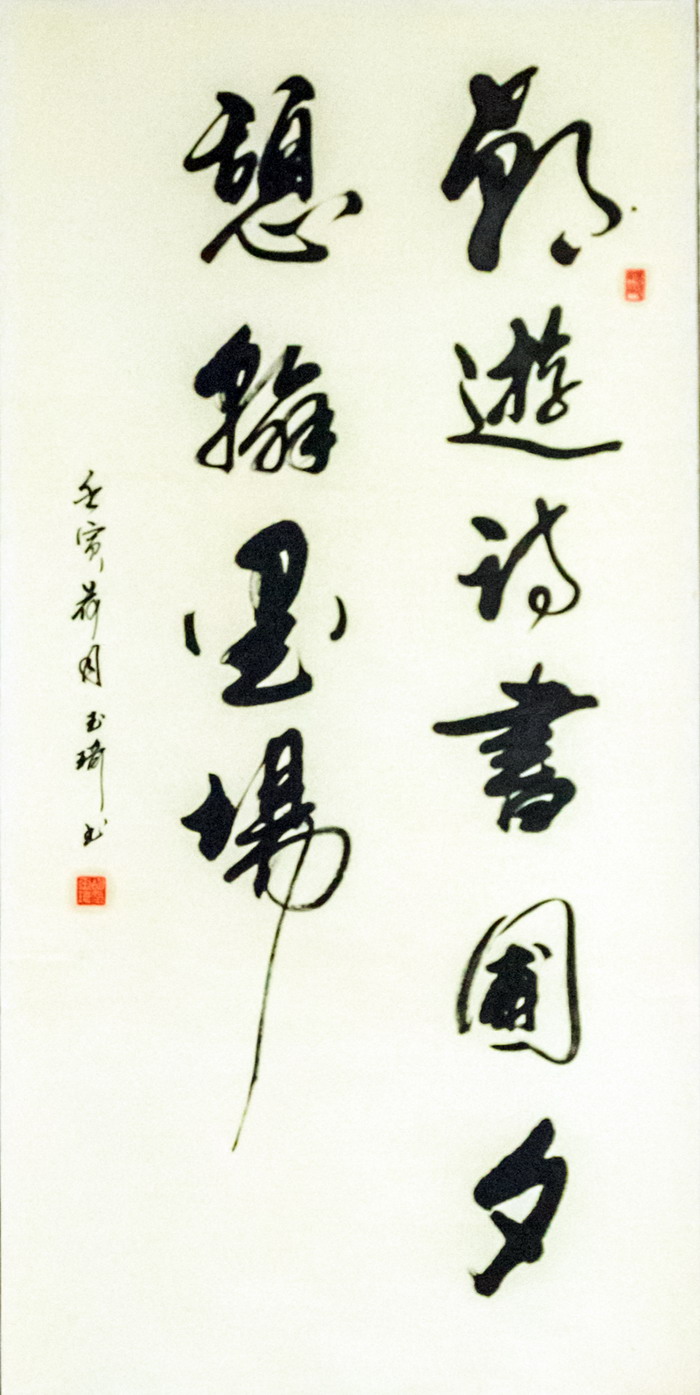 朝遊詩書圃夕
憩翰墨場
壬寅荷月玉琦書